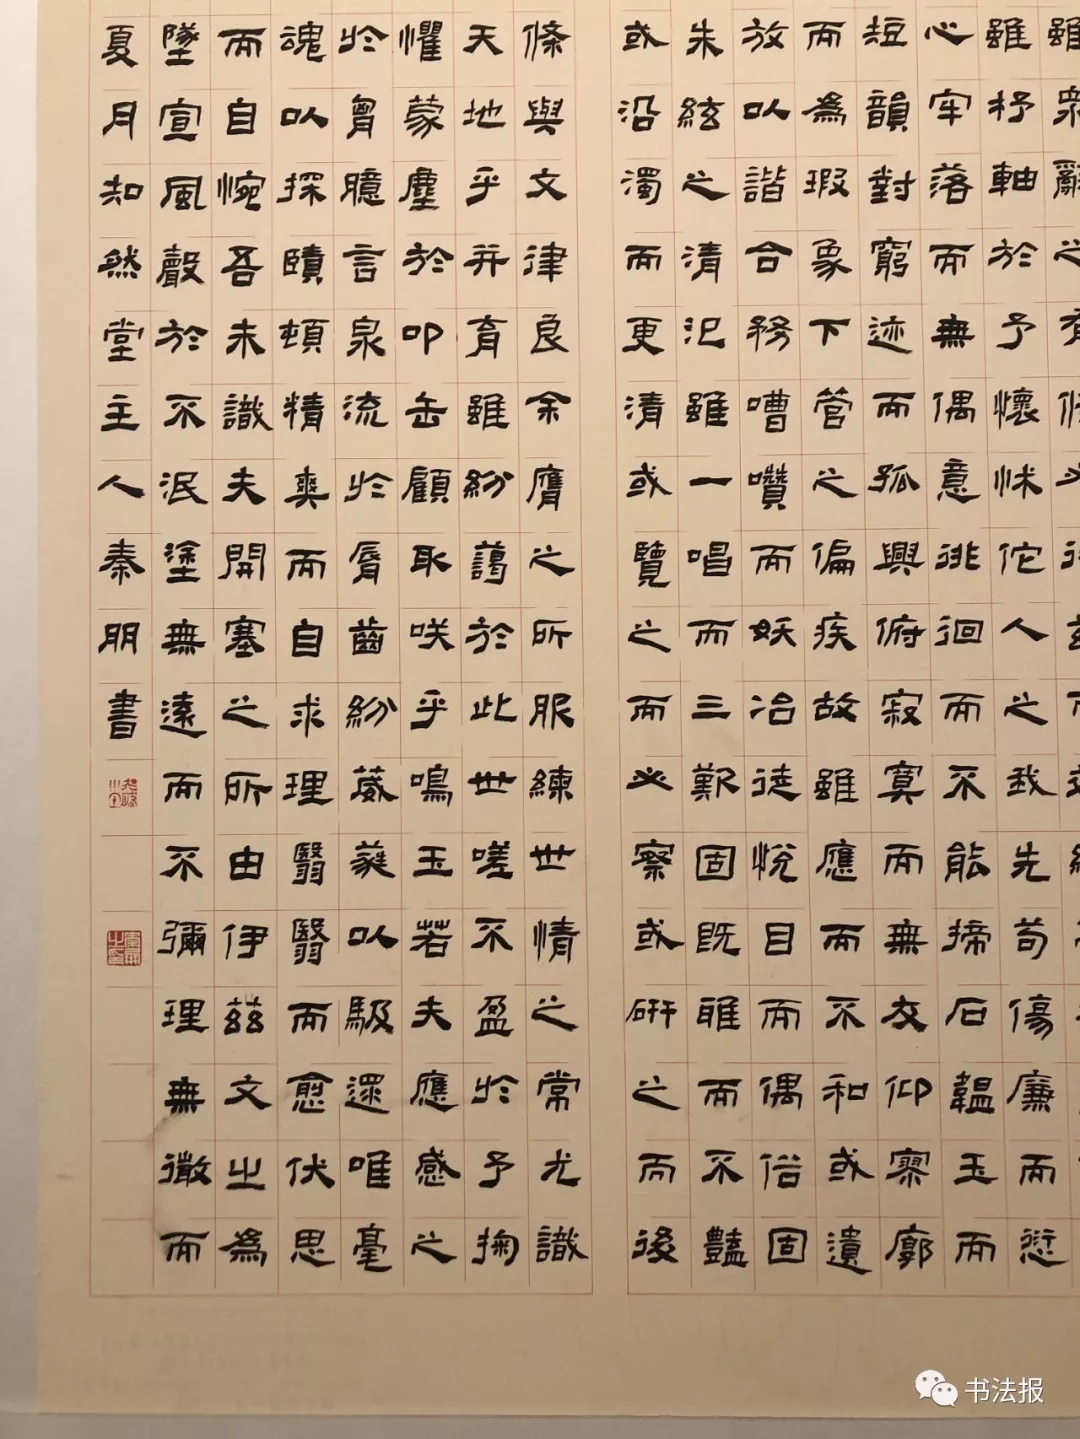 雖杼軸於予懷怵佗人之我先苟傷廉而愆
心牢落而無偶意徘徊而不能揥石韞玉而
短韻對窮迹而孤興俯寂寞而無友仰寥廓
而為瑕象下管之偏疾故雖應而不和或遺
放以諧合務嘈囋而妖冶徒悅目而偶俗固
朱絃之清汜雖一唱而三艱固既雅而不豔
或沿濁而更清或覽之而必察或研之而後
條與文律良余膺之所服練世情之常尤識
天地乎并育雖紛藹於此世嗟不盈於予掬
懼蒙塵於叩缶顧取咲乎鳴玉若夫應感之
於胷臆言泉流於脣齒紛葳蕤以馺遝唯毫
魂以探賾頓精爽而自求理翳翳而愈伏思
而自惋吾未識夫開塞之所由伊茲文之為
墜宣風聲於不泯塗無遠而不彌理無微而
夏月知然堂主人秦朋書
书法报